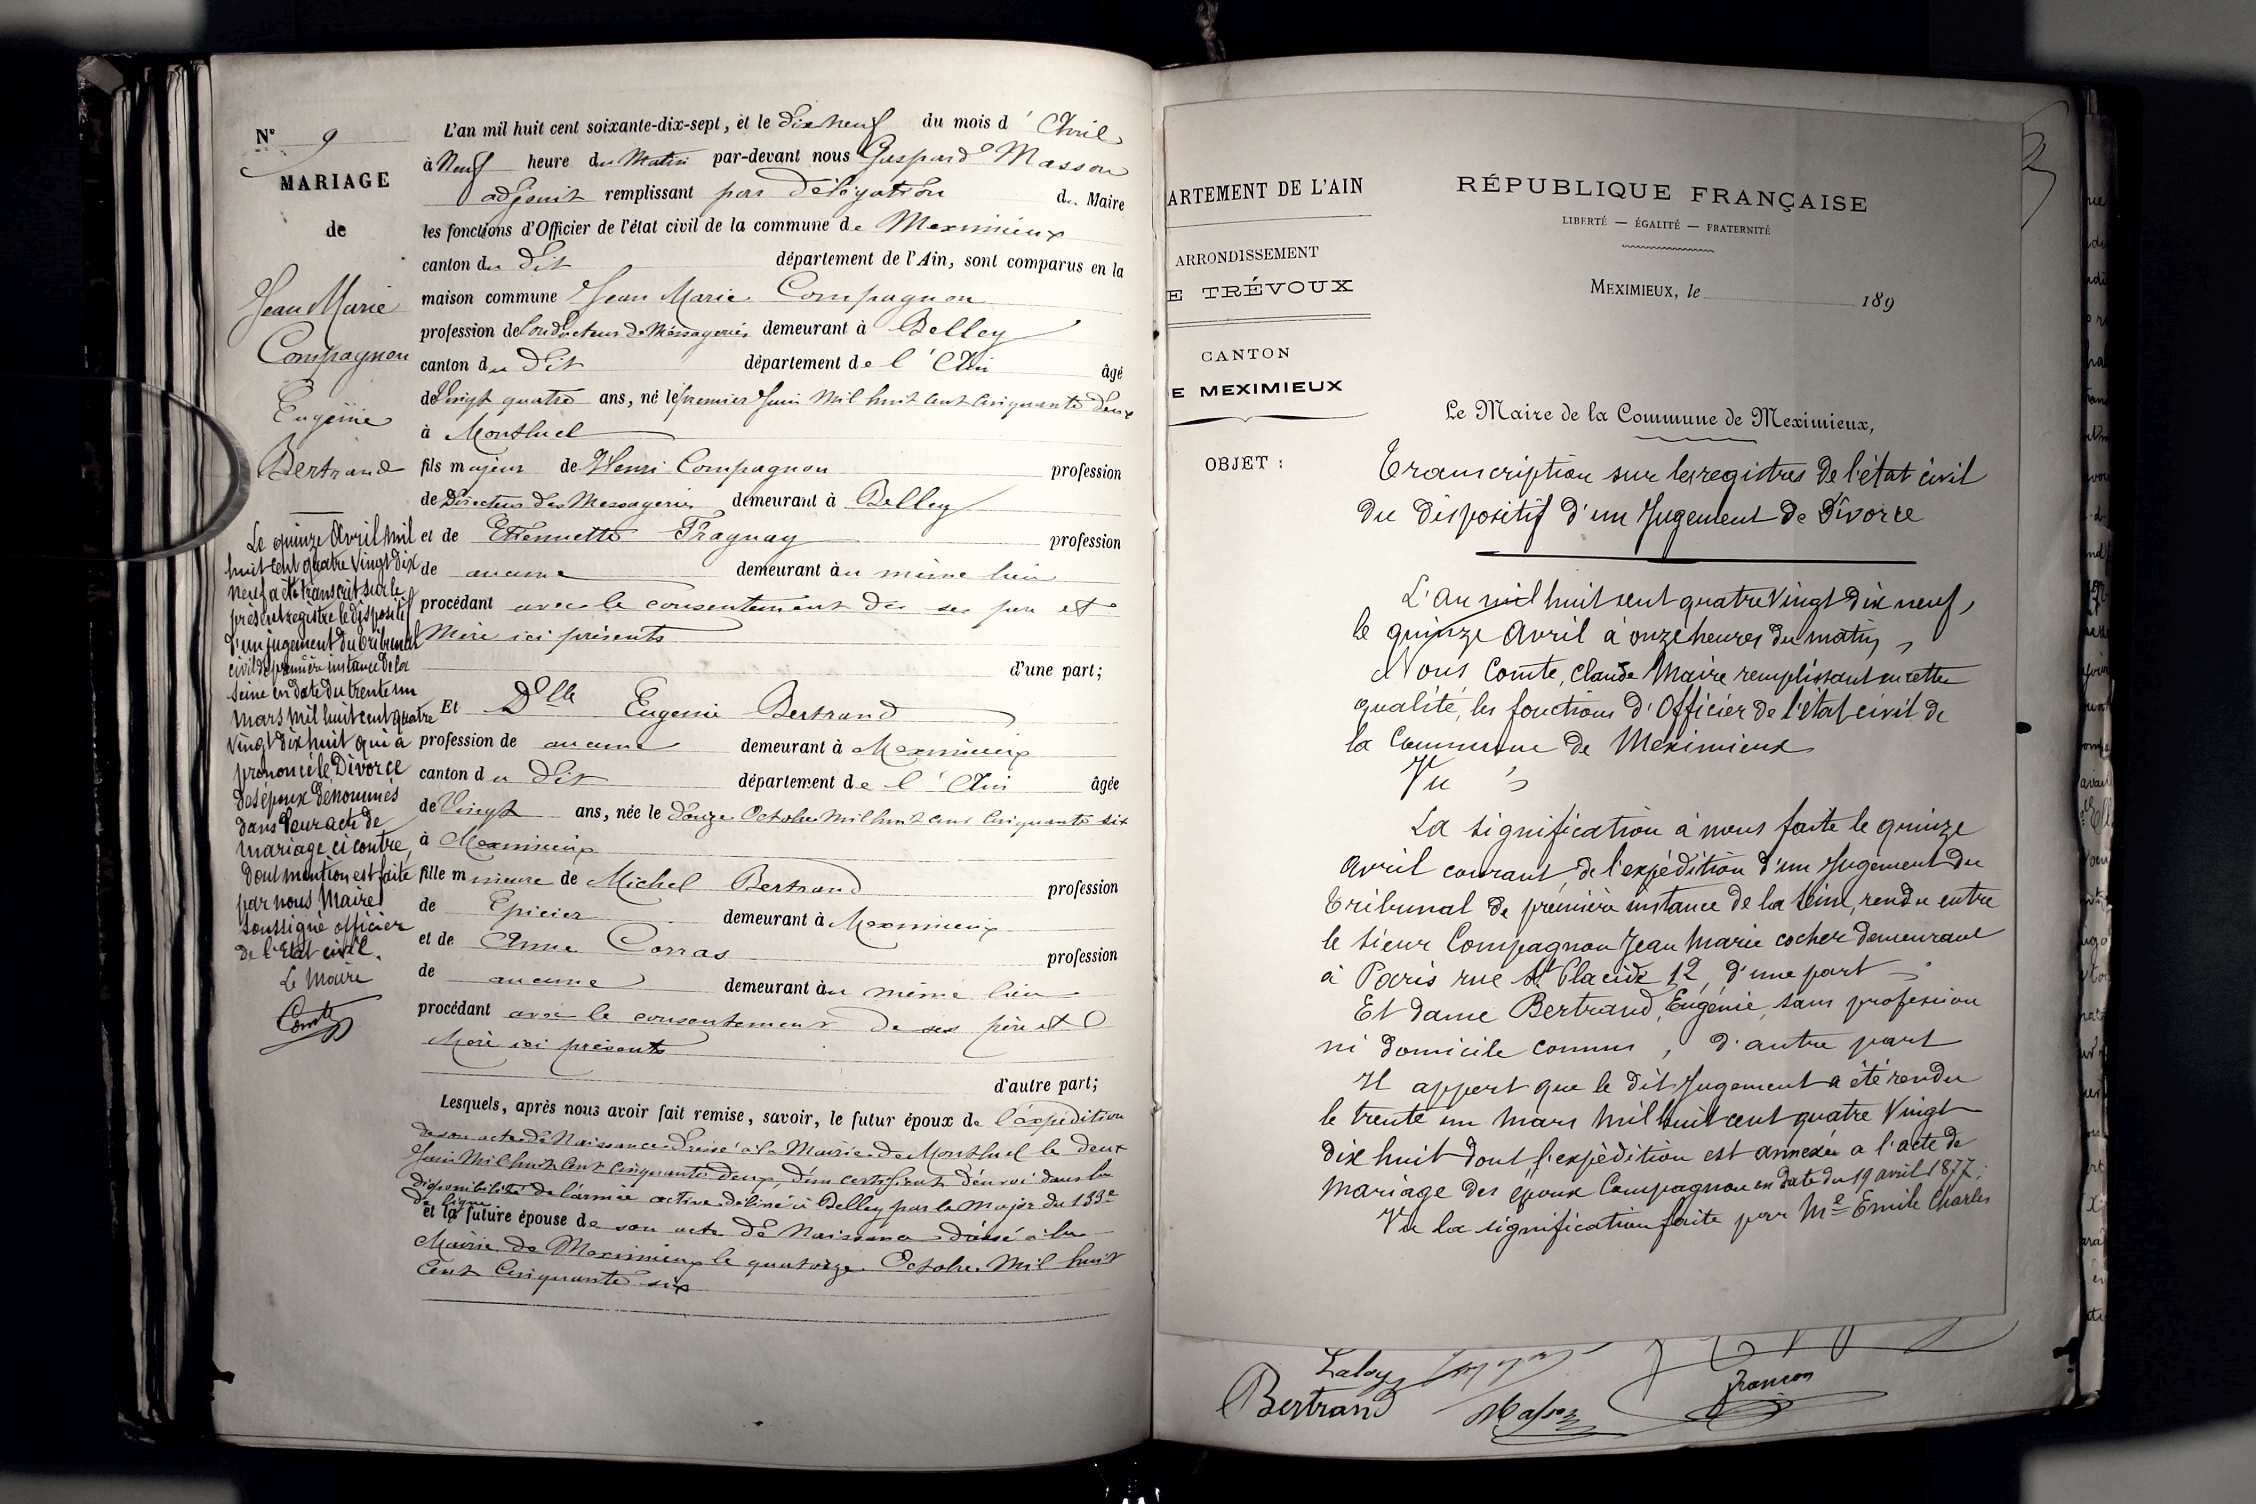 N° 9
MARIAGE
de
Jean Marie
Compagnon
Eugénie
Bertrand
Le quinze Avril mil
huit cent quatre vingt dix
neuf a été transcrit sur le
présent registre le dispositif
d'un jugement du tribunal
civil de première instance de la
Seine en date du trente un
mars mil huit cent quatre
vingt dix huit qui a
prononcé le Divorce
des époux dénommés
dans leur acte de
mariage ci contre,
dont mention est faite
par nous Maire
soussigné officier
de l'Etat civil.
Le Maire
Comte
L'an mil huit cent soixante-dix-sept, et le dix neuf du mois d'Avril
à Neuf heure du Matin par-devant nous Gaspard Masson
adjoint remplissant par délégation d.. Maire
les fonctions d'Officier de l'état civil de la commune de Meximieux
canton du dit département de l'Ain, sont comparus en la
maison commune Jean Marie Compagnon
profession de Conducteur de Messageries demeurant à Belley
canton du dit département de l'Ain âgé
de Vingt quatre ans, né le premier Juin Mil huit Cent Cinquante deux
à Montluel
fils majeur de Henri Compagnon profession
de Directeur des Messageries demeurant à Belley
et de Etiennette Fragnay profession
de aucune demeurant au même lieu
procédant avec le consentement de ses père et
Mère ici présents
d'une part;
Et Delle Eugenie Bertrand
profession de aucune demeurant à Meximieux
canton du dit département de l'Ain âgée
de Vingt ans, née le douze Octobre Mil huit Cent Cinquante six
à Meximieux
fille mineure de Michel Bertrand profession
de Epicier demeurant à Meximieux
et de Anne Corras profession
de aucune demeurant au même lieu
procédant avec le consentement de ses père et
Mère ici présents
d'autre part;
Lesquels, après nous avoir fait remise, savoir, le futur époux de l'expédition
de son acte de Naissance dressé à la Mairie de Montluel le deux
Juin Mil huit Cent Cinquante deux, d'un certificat d'envoi dans la
disponibilité de l'armée active délivré à Belley par le Major du 133e
de ligne
et la future épouse de son acte de Naissance dressé à la
Mairie de Meximieux le quatorze Octobre Mil huit
Cent Cinquante six
ARTEMENT DE L'AIN
ARRONDISSEMENT
E TRÉVOUX
CANTON
E MEXIMIEUX
OBJET :
RÉPUBLIQUE FRANÇAISE
LIBERTÉ — ÉGALITÉ — FRATERNITÉ
MEXIMIEUX, le 189
Le Maire de la Commune de Meximieux,
Transcription sur les registres de l'état civil
du Dispositif d'un Jugement de Divorce
L'an mil huit cent quatre Vingt dix neuf,
le quinze Avril à onze heures du matin,
Nous Comte, Claude Maire remplissant en cette
qualité, les fonctions d'Officier de l'état civil de
la Commune de Meximieux
Vu
La signification à nous faite le quinze
Avril courant, de l'expédition d'un Jugement du
Tribunal de première instance de la Seine, rendu entre
le sieur Compagnon Jean Marie cocher demeurant
à Paris rue St Placide 12, d'une part
Et dame Bertrand, Eugénie, sans profession
ni domicile connus, d'autre part
Il appert que le dit Jugement a été rendu
le trente un mars mil huit cent quatre Vingt
dix huit dont l'expédition est annexée a l'acte de
Mariage des époux Compagnon en date du 19 avril 1877;
Vu la signification faite par Me Emile Charles
Laloy
Bertrand
Masson
Francon